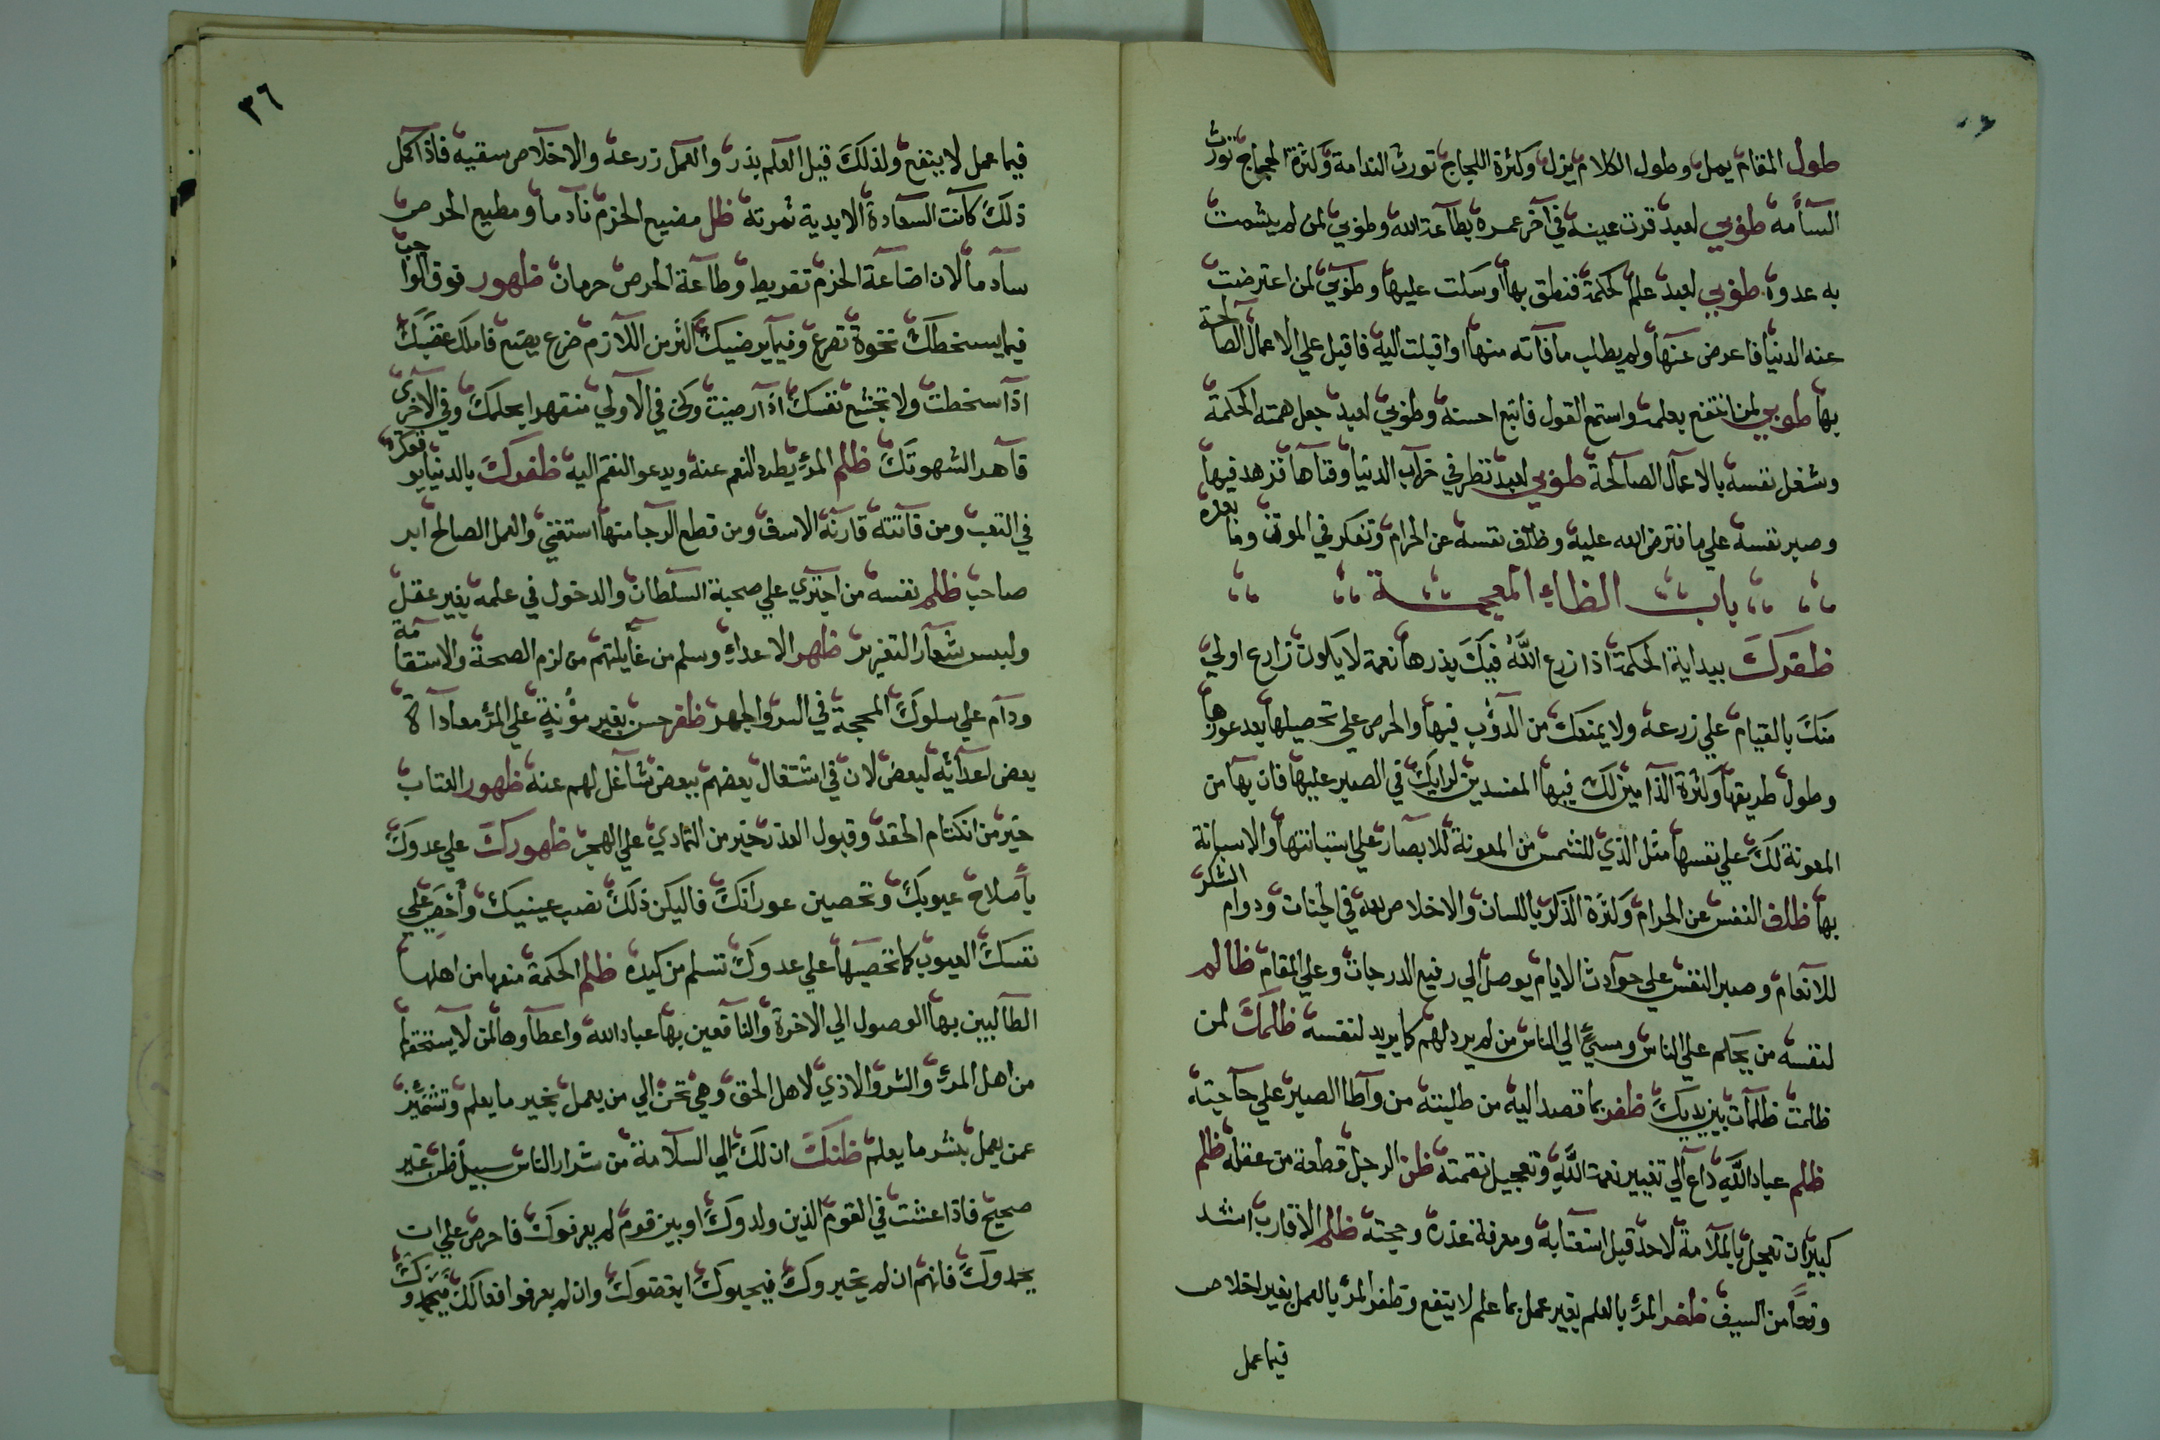 طول المقام يمل وطول الكلام يزل وكثرة اللجاج تورث الندامة وكثرة الحجاج تورث
السأمة طوبي لعبد قرت عينه في آخر عمره بطاعة الله وطوبي لمن لم يشمت
به عدوه طوبي لعبد علم الحكمة فنطق بها او سكت عليها وطوبي لمن اعترضت
عنه الدنيا فاعرض عنها ولم يطلب ما فاته منها او اقبلت اليه فاقبل علي الاعمال الصالحة
بها طوبي لمن انتفع بعلمه واستمع القول فاتبع احسنه وطوبي لعبد جعل همته الحكمة
وشغل نفسه بالاعمال الصالحة طوبي لعبد نظر في خراب الدنيا وفناها فزهد فيها
وصبر نفسه علي ما افترض الله عليه وظلف نفسه عن الحرام وتفكر في الموت وما بعده
باب الظاء المعجمة
ظفرك ببداية الحكمة اذا زرع الله فيك بذرها نعمة لا يكون زارع اولي
منك بالقيام علي زرعه ولا يمنعك من الدؤب فيها والحرص علي تحصيلها بعد غورها
وطول طريقها وكثرة الذامين لك فيها المفسدين لرايك في الصبر عليها فان بها من
المعونة لك علي نفسها مثل الذي للشمس من المعونة للابصار علي استبانتها والاستبانة
بها ظلف النفس عن الحرام وكثرة الذكر باللسان والاخلاص لله في الجنات ودوام الشكر
للانعام وصبر النفس علي حوادث الايام يوصل الي رفيع الدرجات وعلي المقام ظالم
لنفسه من يحلم علي الناس ومسئ الي الناس من لم يرد لهم كما يريد لنفسه ظلمك لمن
ظلمت ظلمات بين يديك ظفر بما قصد اليه من طلبته من وآطا الصبر علي حآجته
ظلم عباد الله داع الي تغيير نعمة الله وتعجيل نقمته ظن الرجل قطعة من عقله ظلم
كبير ان تعجل بالملامة لاحد قبل استعتابه ومعرفة عذره وحجته ظلم الاقارب اشد
وقعا من السيف ظفر المرء بالعلم بغير عمل بما علم لا ينفع وظفر المرء بالعمل بغير اخلاص
فيما عمل
٣٦
فيما عمل لا ينفع ولذلك قيل العلم بذر والعمل زرعه والاخلاص سقيه فاذا كمل
ذلك كانت السعادة الابدية ثمرته ظل مضيع الحزم نادما ومطيع الحرص
سآدما لان اضاعة الحزم تفريط وطاعة الحرص حرمان ظهور فوق الواجب
فيما يسخطك نخوة تصرع وفيما يرضيك اكثر من اللازم ضرع يضع فاملك غضبك
اذا سخطت ولا تخشع نفسك اذا رضيت وكن في الاولي منقهرا بحلمك وفي الاخري
قاهرا لشهوتك ظلم المرء يطرد النعم عنه ويدعو النقم اليه ظفرك بالدنيا يوقعك
في التعب ومن فاتته قارنه الاسف ومن قطع الرجا منها استغني والعمل الصالح ابر
صاحب ظلم نفسه من اجتري علي صحبة السلطان والدخول في علمه بغير عقل
ولبس شعار التغرير ظهر الاعداء وسلم من غايلتهم من لزم الصحة والاستقامة
ودام علي سلوك المحجة في السر والجهر ظفر حسن بغير مؤنة علي المرء معاداة
بعض اعدائه لبعض لان في اشتغال بعضهم ببعض شاغل لهم عنه ظهور العتاب
خير من انكتام الحقد وقبول العذر خير من التمادي علي الهجر ظهورك علي عدوك
بأصلاح عيوبك وتحصين عوراتك فاليكن ذلك نصب عينيك وأحص علي
نفسك العيوب كما تحصيها علي عدوك تسلم من كيده ظلم الحكمة منعها من اهلها
الطالبين بها الوصول الي الاخرة والنافعين بها عباد الله واعطآوها لمن لا يستحقها
من اهل المرء والشر والاذي لاهل الحق وهي تحن الي من يعمل بخير ما يعلم وتشمئز
عمن يعمل بشر ما يعلم ظنك ان لك الي السلامة من شرار الناس سبيل ظن غير
صحيح فاذا عشت في القوم الذين ولدوك او بين قوم لم يعرفوك فاحرص علي ان
يجدوك فانهم ان لم يخبروك فيحبوك ابغضوك وان لم يعرفوا افعالك